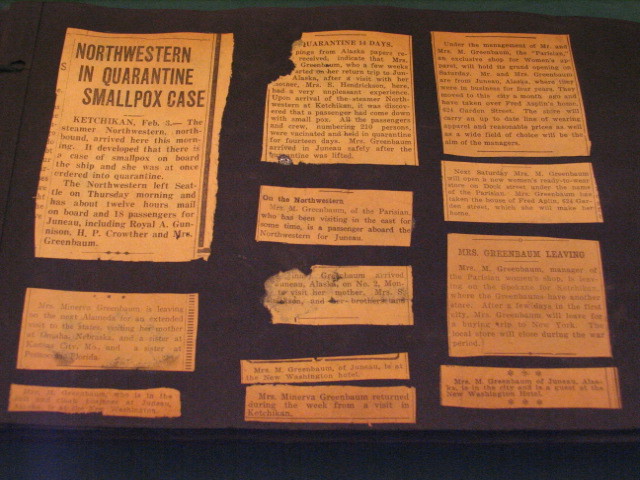 NORTHWESTERN
IN QUARANTINE
SMALLPOX CASE
KETCHIKAN, Feb. The
steamer Northwestern, north-
bound, arrived here this morn-
ing. It developed that there is
a case of smallpox on board
the ship and she was at once
ordered into quarantine.
The Northwestern left Seat-
tle on Thursday morning and
has about twelve hours mail
on board and 18 passengers for
Juneau, including Royal A. Gun-
nison, H. P. Crowther and Mrs.
Greenbaum.
Mrs Minerva Greenbaum is leaving
on the next Alameda for an extended
visit to the States, visiting her mother
at Omaha, Nebraska, and a sister at
Kansas City, Ks. and a sister at
Florida.
Mrs. M. Greenbaum, who is in the
at Juneau,
Washington.
QUARANTINE 14 DAYS.
from Alaska papers re-
received, indicate that Mrs.
Greenbaum, who a few weeks
on her return trip to Jun-
Alaska, after a visit with her
Mrs. S. Hendricksen, here,
had a very unpleasant experience.
Upon arrival of the steamer North-
western at Ketchikan, it was discov-
ered that a passenger had come down
with small pox. All the passengers
and crew, numbering 210 persons,
were vacinated and held in quarantine
for fourteen days. Mrs. Greenbaum
arrived in Juneau safely after the
quarantine was lifted.
On the Northwestern
Mrs. M. Greenbaum, of the Parisian,
who has been visiting in the east for
some time, is a passenger aboard the
Northwestern for Juneau.
Greenbaum arrived
Juneau, Alaska, on No. 2, Mon-
visit her mother, Mrs.
and her brothers and
Mrs. M. Greenbaum, of Juneau, is at
the New Washington hotel.
Mrs. Minerva Greenbaum returned
during the week from a visit in
Ketchikan.
Under the management of Mr and
Mrs. M. Greenbaum, the "Parisian,"
an exclusive shop for Women's ap-
parel, will hold its grand opening on
Saturday. Mr. and Mrs. Greenbaum
are from Juneau, Alaska, where they
were in business for four years. They
moved to this city a month ago and
have taken over Fred Aglin's home,
624 Garden Street. The store will
carry an up to date line of wearing
apparel and reasonable prices as well
as a wide field of choice will be the
aim of the managers.
Next Saturday Mrs. M. Greenbaum
will open a new women's ready-to-wear
store on Dock street under the name
of the Parisian. Mrs. Greenbaum has
taken the house of Fred Aglin, 624 Gar-
den street, which she will make her
home.
MRS. GREENBAUM LEAVING
Mrs. M. Greenbaum, manager of
the Parisian women's shop, is leav-
ing on the for Ketchikan,
where the Greenbaums have another
store. After a few days in the first
city, Mrs. Greenbaum will leave for
a buying trip to New York. The
local store will close during the war
period.
Mrs. M. Greenbaum of Juneau, Alas-
ka, is in the city and is a guest at the
New Washington Hotel.